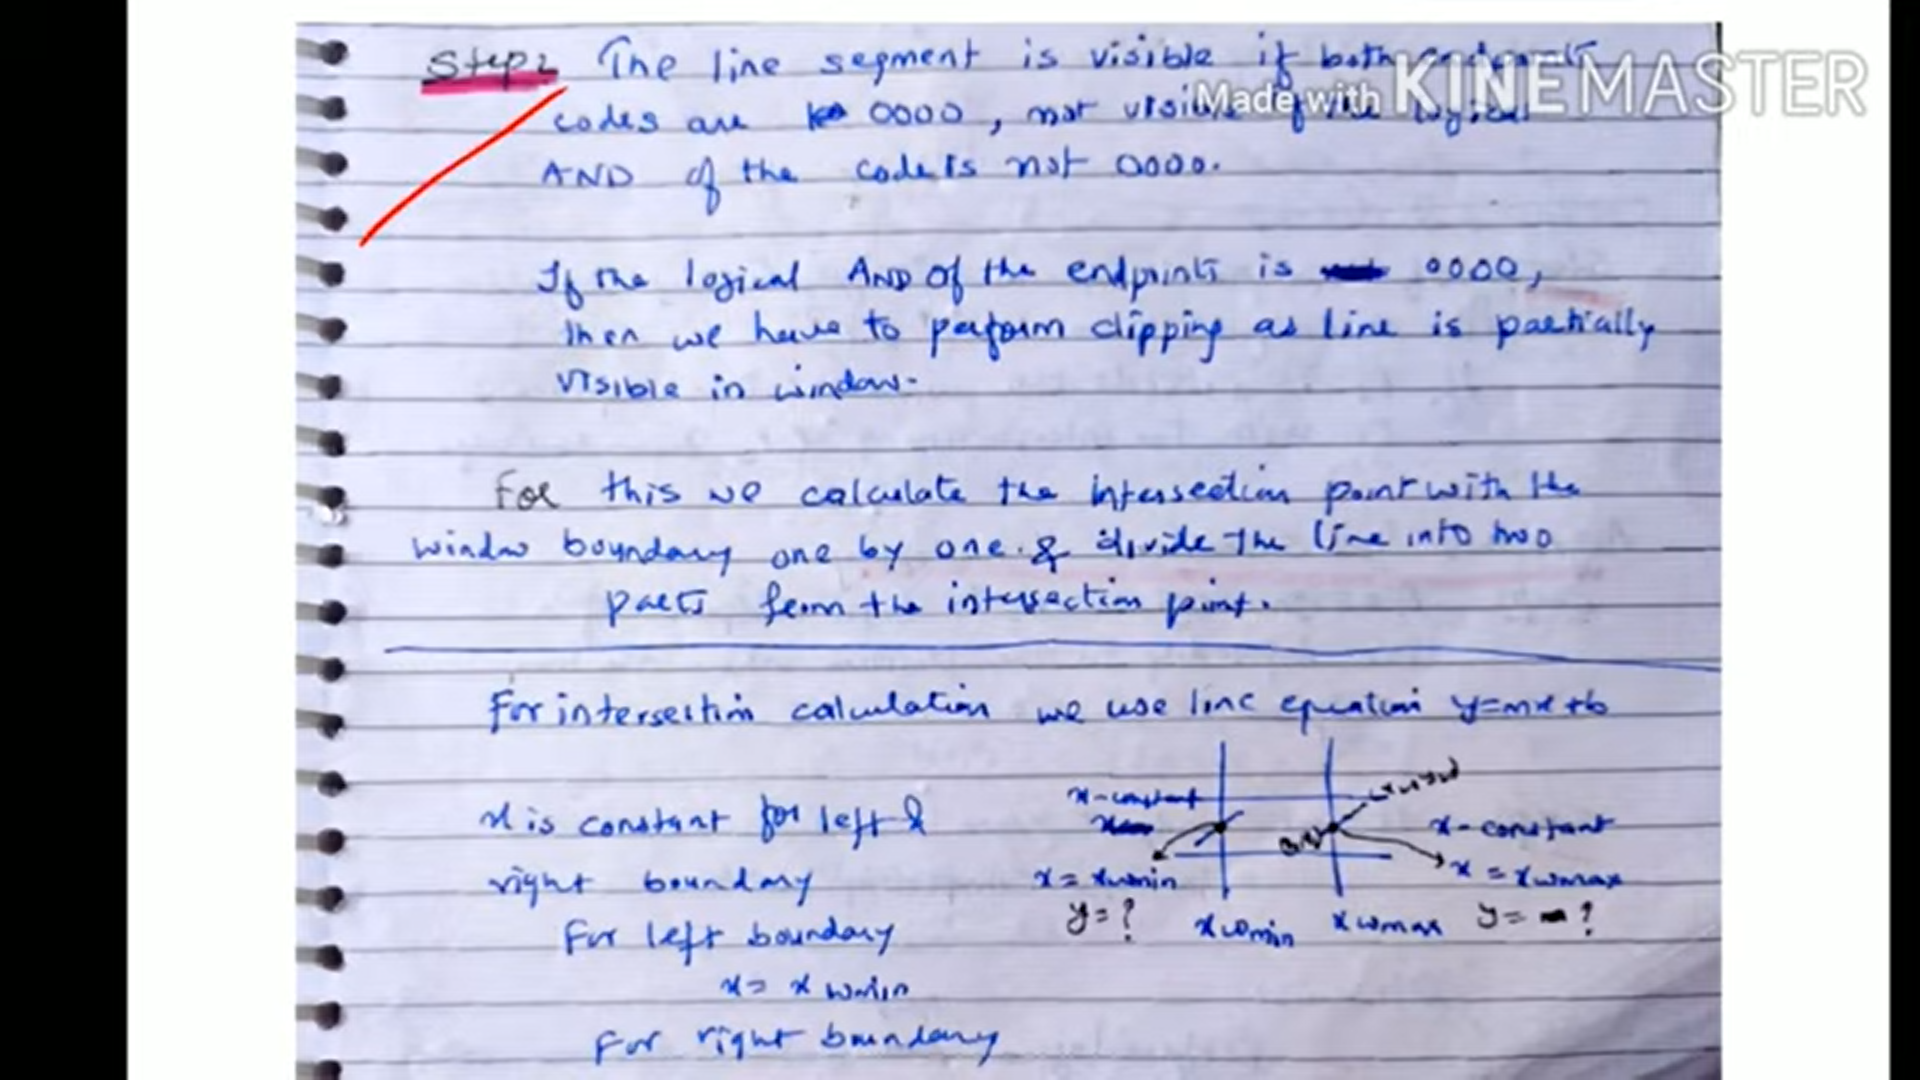 Step 2 The line segment is visible if both endpoints
Made with KINEMASTER
codes are 0000, not visible if the logical
AND of the code is not 0000.
If the logical AND of the endpoints is 0000,
then we have to perform clipping as line is partially
visible in window.
For this we calculate the intersection point with the
window boundary one by one & divide the line into two
parts from the intersection point.
For intersection calculation we use line equation y=mx+b
x is constant for left &
right boundary
For left boundary
x = xwmin
For right boundary
x-constant
x = xwmin
y = ?
xwmin
xwmax
x-constant
x = xwmax
y = ?